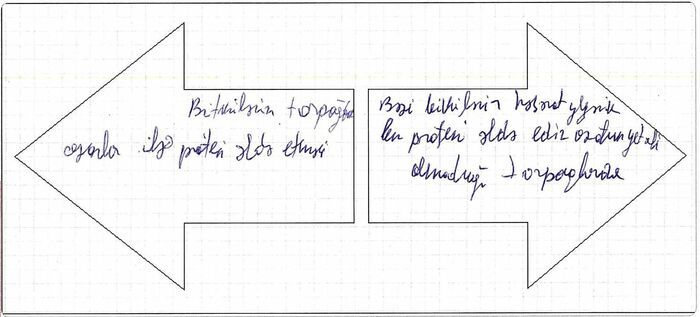 Bitkilərin torpağda
azotla ilə protein əldə etməsi
Bəzi bitkilərin həşərat yeyərək
protein əldə edir azotun yetərli
olmadığı torpaqlarda